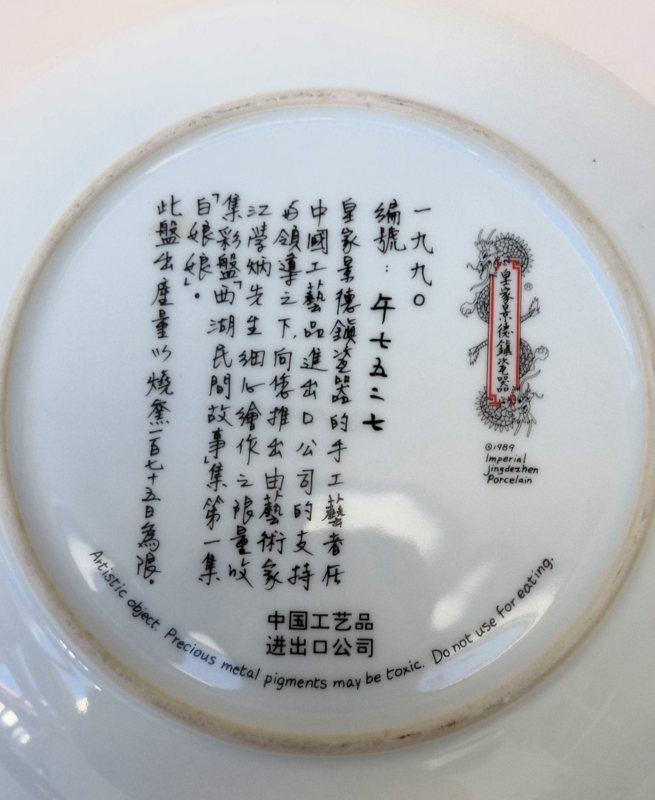 皇家景德鎮瓷器
®
©1989
Imperial
Jingdezhen
Porcelain
一九九〇
編號：午七五二七
皇家景德鎮瓷器的手工藝者在
中國工藝品進出口公司的支持
与領導之下，向您推出由藝術家
江學炳先生細心繪作之限量收
集彩盤「西湖民間故事」集第一集
「白娘娘」。
此盤出產量以燒窯一百七十五日為限。
中国工艺品
进出口公司
Artistic object. Precious metal pigments may be toxic. Do not use for eating.